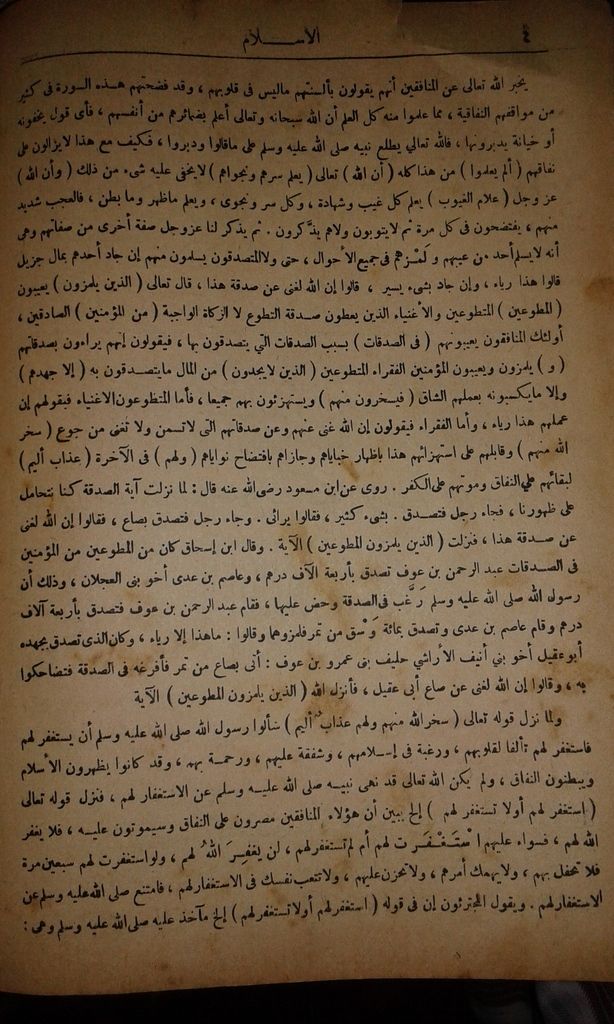 ٤
الاســـلام
يخبر الله تعالى عن المنافقين أنهم يقولون بألسنتهم ماليس فى قلوبهم ، وقد فضحتهم هـذه السورة فى كثير
من مواقفهم النفاقية ، مما علموا منه كل العلم أن الله سبحانه وتعالى أعلم بضمائرهم من أنفسهم ، فأى قول يخفونه
أو خيانة يدبرونها ، فالله تعالى يطلع نبيه صلى الله عليه وسلم على ماقالوا ودبروا ، فكيف مع هذا لايزالون على
نفاقهم ( ألم يعلموا ) من هذا كله ( أن الله ) تعالى ( يعلم سرهم ونجواهم ) لايخفى عليه شىء من ذلك ( وأن الله )
عز وجل ( علام الغيوب ) يعلم كل غيب وشهادة ، وكل سر ونجوى ، ويعلم ماظهر وما بطن ، فالعجب شديد
منهم ، يفتضحون فى كل مرة ثم لايتوبون ولاهم يذّكرون . ثم يذكر لنا عزوجل صفة أخرى من صفاتهم وهى
أنه لايسلم أحد من عيبهم و لَمْزهم فى جميع الأحوال ، حتى ولا المتصدقون يسلمون منهم إن جاد أحدهم بمال جزيل
قالوا هذا رياء ، وإن جاد بشىء يسير ، قالوا إن الله لغنى عن صدقة هذا ، قال تعالى ( الذين يلمزون ) يعيبون
( المطوعين ) المتطوعين والأغنياء الذين يعطون صـدقة التطوع لا الزكاة الواجبة ( من المؤمنين ) الصادقين ،
أولئك المنافقون يعيبونهم ( فى الصدقات ) بسبب الصدقات التى يتصدقون بها ، فيقولون إنهم يراءون بصدقاتهم
( و ) يلمزون ويعيبون المؤمنين الفقراء المتطوعين ( الذين لايجدون ) من المال مايتصـدقون به ( إلا جهدهم )
وإلا مايكسبونه بعملهم الشاق ( فيسخرون منهم ) ويستهزئون بهم جميعا ، فأما المتطوعون الاغنياء فبقولهم إن
عملهم هذا رياء ، وأما الفقراء فيقولون إن الله غنى عنهم وعن صدقاتهم التى لاتسمن ولا تغنى من جوع ( سخر
الله منهم ) وقابلهم على استهزائهم هذا باظهار خباياهم وجازاهم بافتضاح نواياهم ( ولهم ) فى الآخرة ( عذاب أليم )
لبقائهم على النفاق وموتهم على الكفر . روى عن ابن مسعود رضى الله عنه قال : لما نزلت آية الصدقة كنا نتحامل
على ظهورنا ، فجاء رجل فتصـدق . بشىء كثير ، فقالوا يرائى . وجاء رجل فتصدق بصاع ، فقالوا إن الله لغنى
عن صـدقة هذا ، فنزلت ( الذين يلمزون المطوعين ) الآية . وقال ابن إسحاق كان من المطوعين من المؤمنين
فى الصـدقات عبد الرحمن بن عوف تصدق بأربعة آلاف درهم ، وعاصم بن عدى أخو بنى العجلان ، وذلك أن
رسول الله صلى الله عليه وسلم رَغَّب فى الصدقة وحض عليها ، فقام عبد الرحمن بن عوف فتصدق بأربعة آلاف
درهم وقام عاصم بن عدى وتصدق بمائة وَسْق من تمر فلمزوهما وقالوا : ماهذا إلا رياء ، وكان الذى تصدق بجهده
أبو عقيل أخو بنى أنيف الأراشى حليف بنى عمرو بن عوف : أتى بصاع من تمر فأفرغه فى الصدقة فتضاحكوا
به ، وقالوا إن الله لغنى عن صاع أبى عقيل ، فأنزل الله ( الذين يلمزون المطوعين ) الآية
ولما نزل قوله تعالى ( سخر الله منهم ولهم عذاب أليم ) سألوا رسول الله صلى الله عليه وسلم أن يستغفر لهم
فاستغفر لهم تألفا لقلوبهم ، ورغبة فى إسـلامهم ، وشفقة عليهم ، ورحمـة بهم ، وقد كانوا يظهرون الأسلام
ويبطنون النفاق ، ولم يكن الله تعالى قد نهى نبيـه صلى الله عليـه وسلم عن الاستغفار لهم ، فنزل قوله تعالى
( استغفر لهم أولا تستغفر لهم ) إلخ يبين أن هؤلاء المنافقين مصرون على النفاق وسيموتون عليـه ، فلا يغفر
الله لهم ، فسواء عليهم اسْتَغْفَرْت لهم أم لم تستغفر لهم ، لن يغفِرَ اللهُ لهم ، ولو استغفرت لهم سبعين مرة
فلا تحفل بهم ، ولايهمك أمرهم ، ولا تحزن عليهم ، ولا تتعب نفسك فى الاستغفار لهم ، فامتنع صلى الله عليه وسلم عن
الاستغفار لهم . ويقول المجترئون إن فى قوله ( استغفر لهم أولا تستغفر لهم ) إلخ مآخذ عليه صلى الله عليه وسلم وهى :